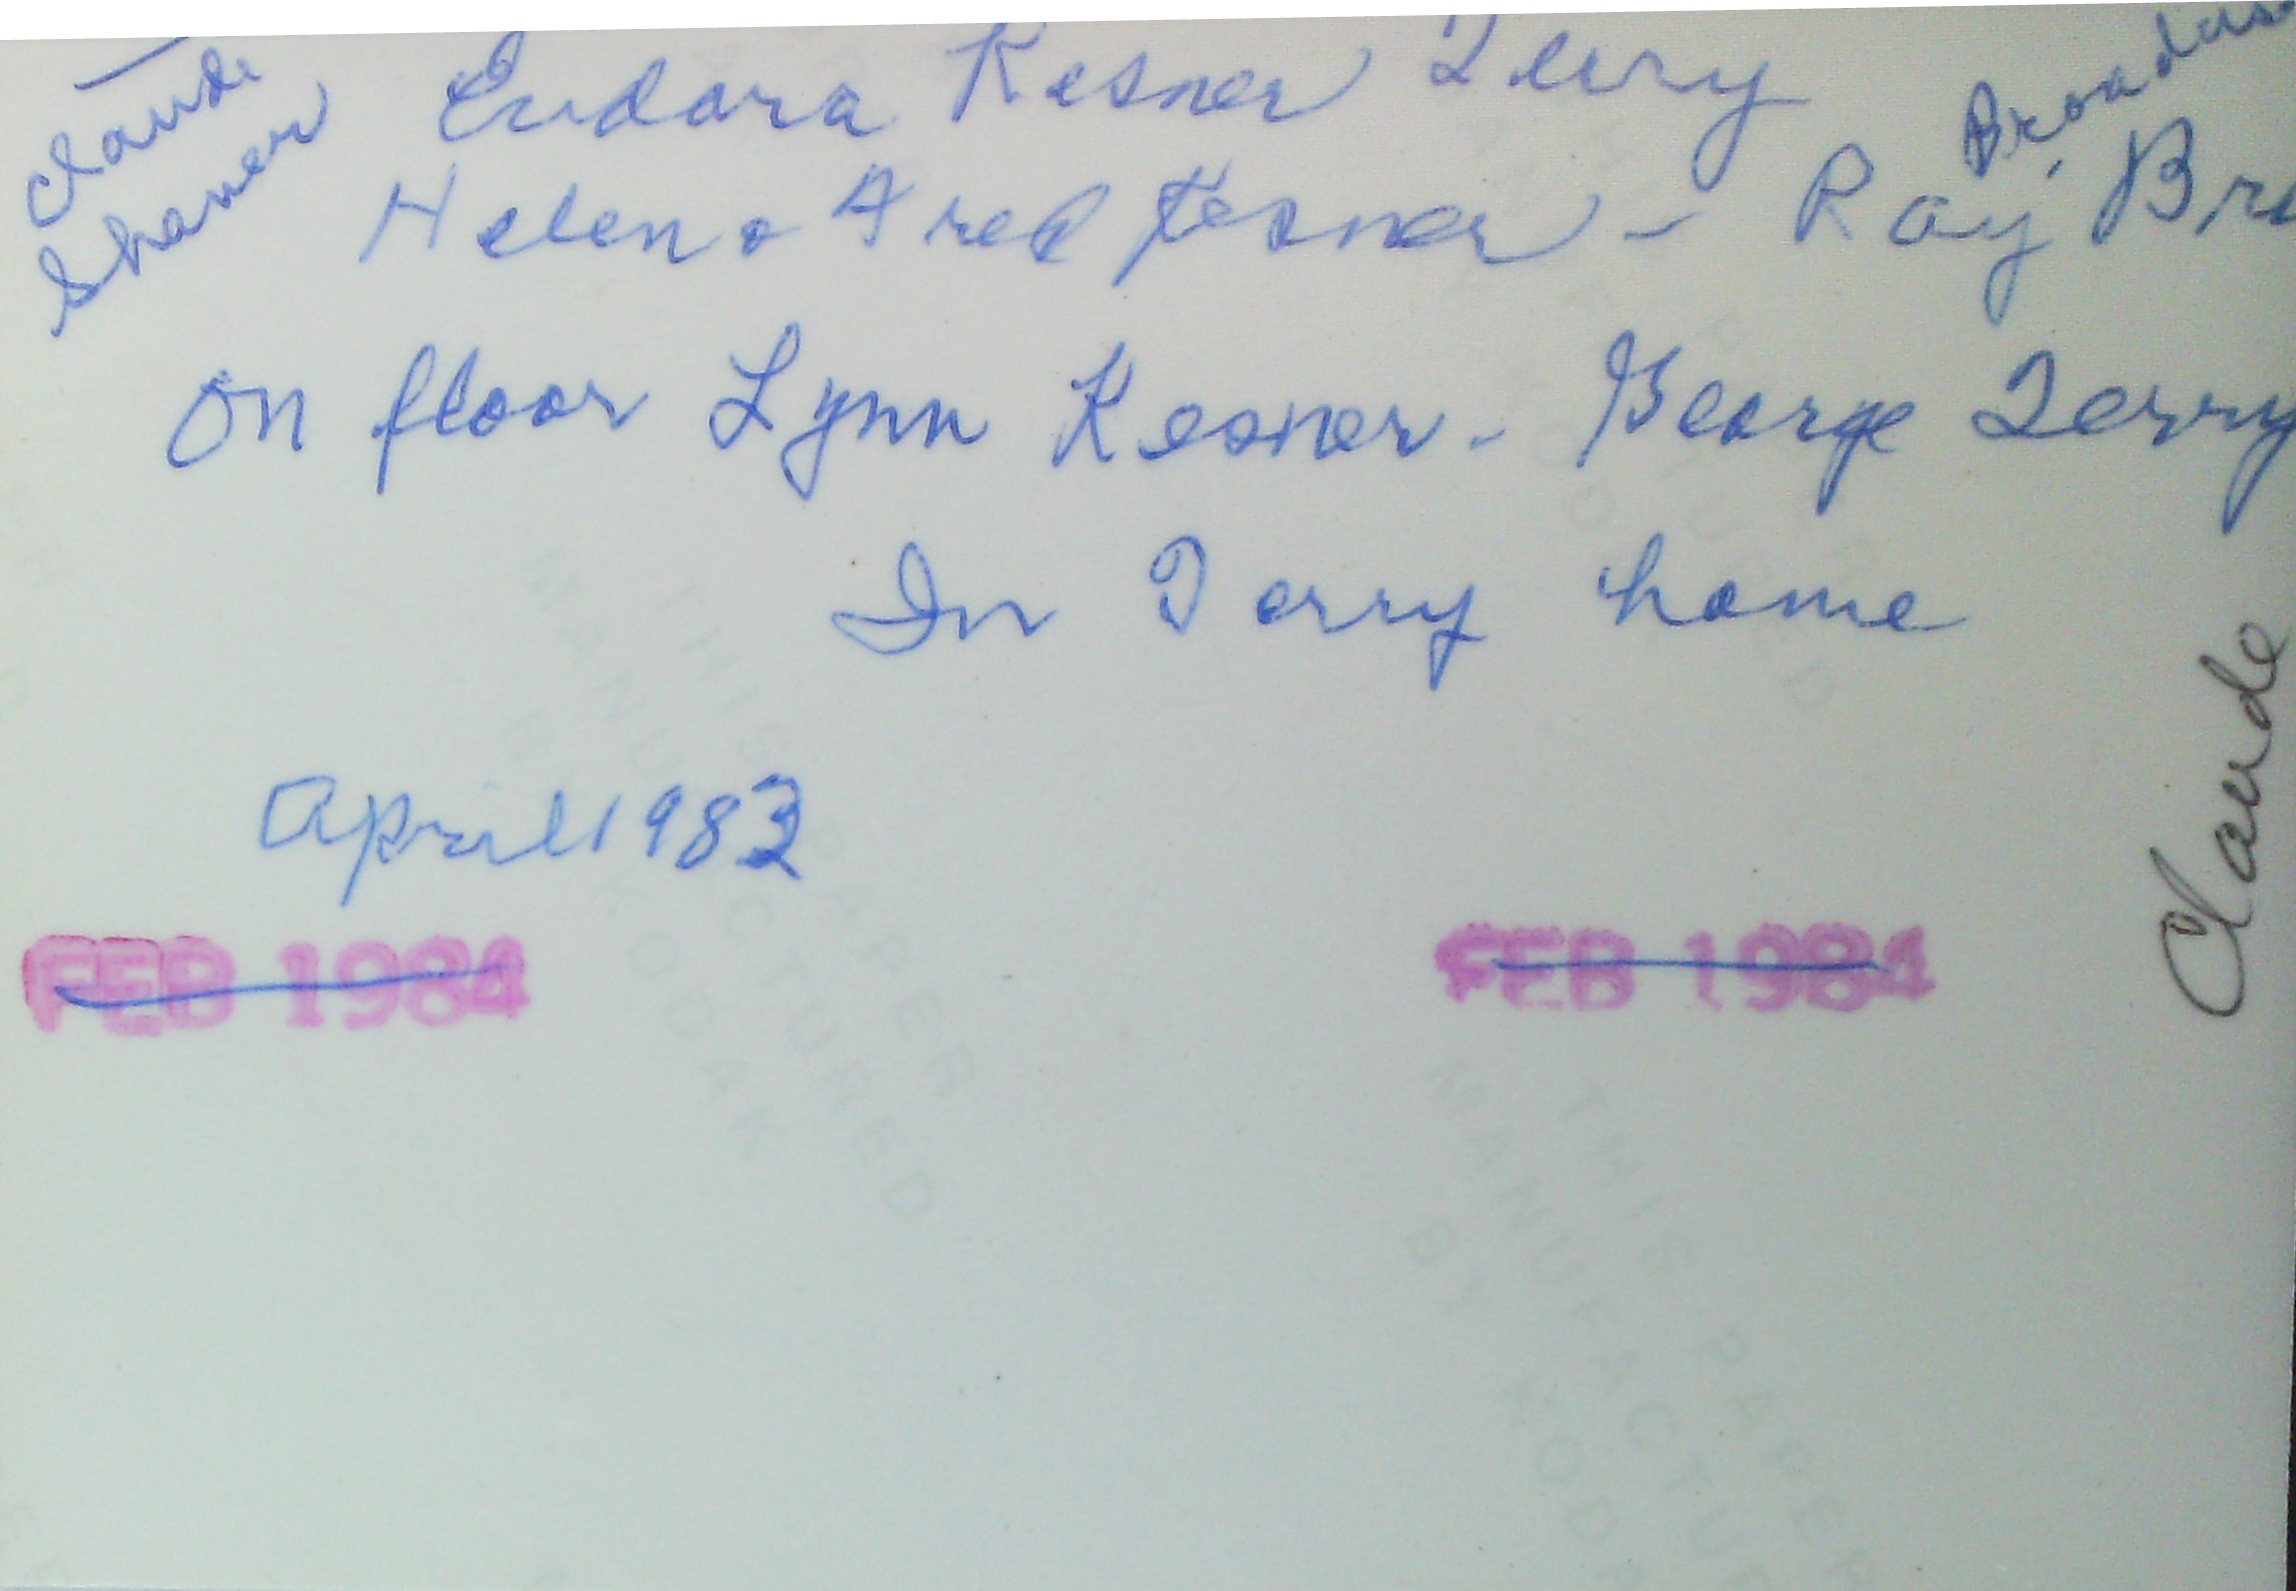 Claude
Shaner
Eudora Kesner Terry
Broadus
Helen & Fred Kesner - Ray Bro
On floor Lynn Kesner - George Terry
In Terry home
Claude
April 1983
FEB 1984 FEB 1984
THIS PAPER
MANUFACTURED
BY KODAK
THIS PAPER
MANUFACTU
BY KODA